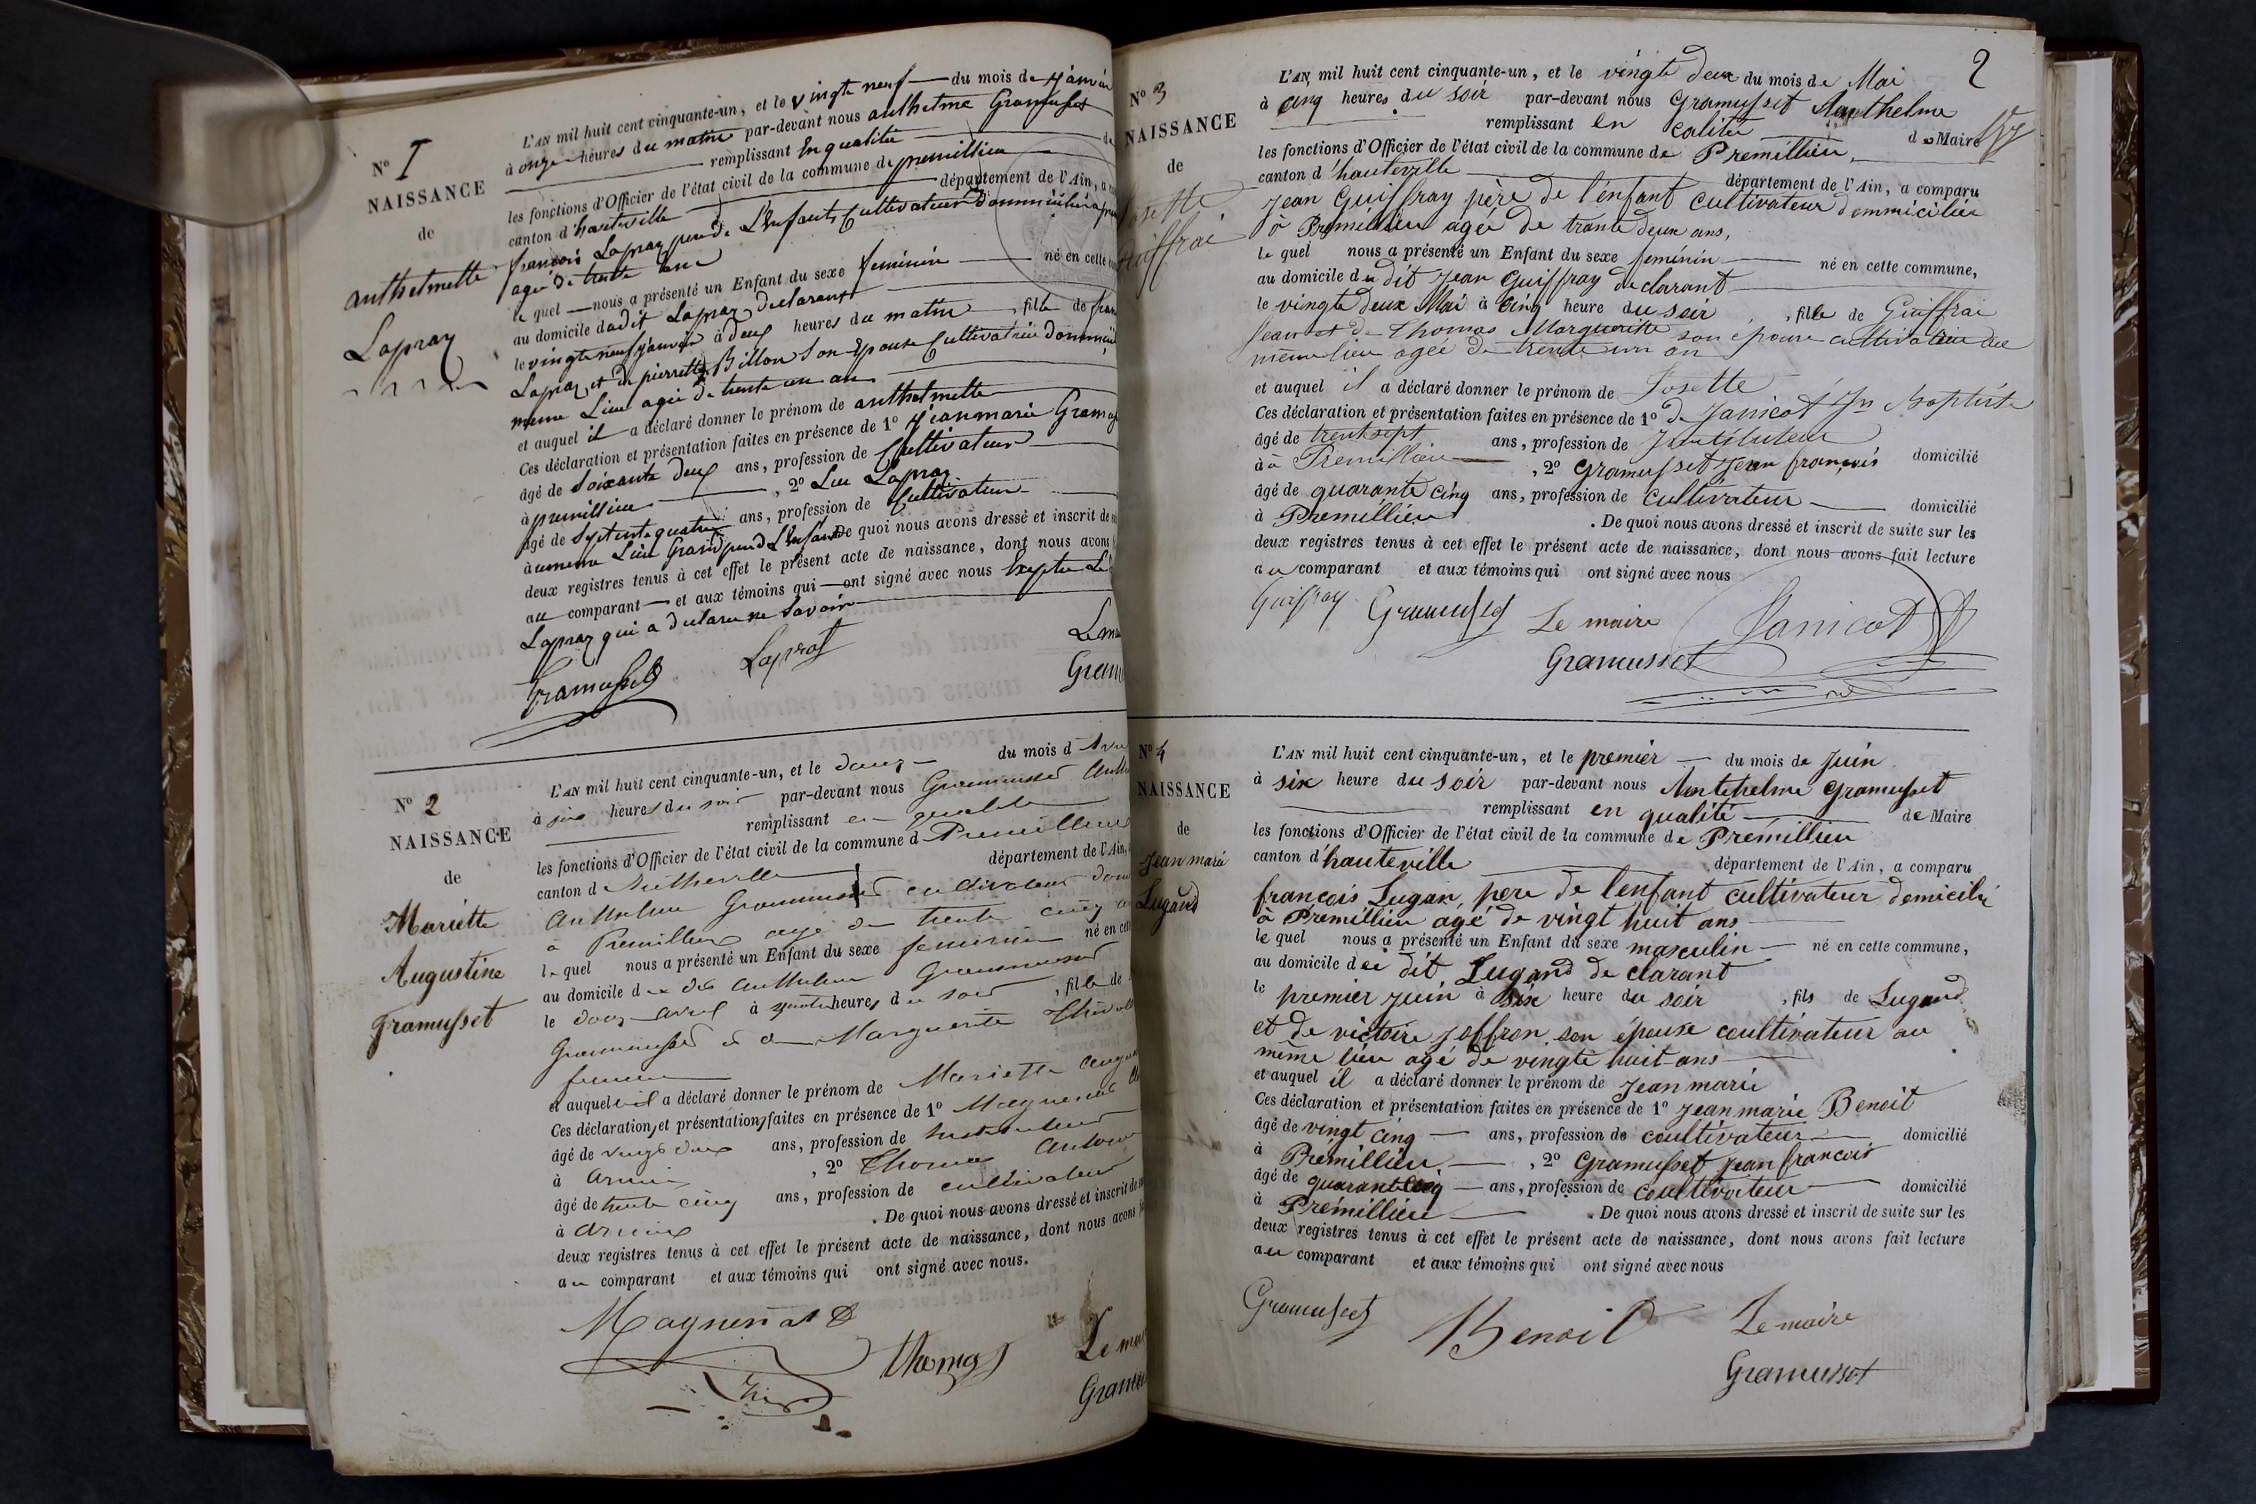 N° I
NAISSANCE
de
anthelmette
Lapraz
L'AN mil huit cent cinquante-un, et le vingte neuf du mois de
à onze heures du matin par-devant nous anthelme Gramusset
remplissant En qualitée
les fonctions d'Officier de l'état civil de la commune de premillieu
canton d'hauteville département de l'Ain, a
françois Lapraz pere de L'enfant Cultivateur
agée de trente
le quel nous a présenté un Enfant du sexe feminin né en cette
au domicile dudit Lapraz declarant
le vingte neuf janvier à deux heures du matin, fille de
Lapraz et de pierrette Billon Son Epouse
meme Lieu agée de trente un an
et auquel il a déclaré donner le prénom de anthelmette
Ces déclaration et présentation faites en présence de 1° jeanmarie
âgé de Soixante deux ans, profession de Cultivateur
à premillieu, 2° Lapraz
âgé de ans, profession de Cultivateur
à meme Lieu Grand pere de L'enfant De quoi nous avons dressé et inscrit de
deux registres tenus à cet effet le présent acte de naissance, dont nous avons
au comparant et aux témoins qui ont signé avec nous
Lapraz qui a declaré ne Savoir
Gramusset Laprat
N° 2
NAISSANCE
de
Mariette
Augustine
Gramusset
L'AN mil huit cent cinquante-un, et le douze du mois d'
à six heures du soir par-devant nous Gramusset
remplissant en qualité
les fonctions d'Officier de l'état civil de la commune d Premillieu
canton d département de l'Ain,
Anthelme Gramusset cultivateur
à Premillieu agé de trente cinq
le quel nous a présenté un Enfant du sexe feminin né en
au domicile du dit Anthelme Gramusset
le douze avril à quatre heures du soir, fille de
Gramusset et de Marguerite
femme
et auquel il a déclaré donner le prénom de Mariette
Ces déclaration et présentation faites en présence de 1° Magnenat
âgé de vingt deux ans, profession de Instituteur
à, 2° Thomas
âgé de trente cinq ans, profession de cultivateur
à. De quoi nous avons dressé et inscrit
deux registres tenus à cet effet le présent acte de naissance, dont nous avons
au comparant et aux témoins qui ont signé avec nous.
Magnenat
Thomas
2
N° 3
NAISSANCE
de
L'AN mil huit cent cinquante-un, et le vingte deux du mois de Mai
à cinq heures du soir par-devant nous Gramusset Anthelme
remplissant en calitée de Maire
les fonctions d'Officier de l'état civil de la commune de Premillieu,
canton d'hauteville département de l'Ain, a comparu
Jean Guiffray père de l'enfant cultivateur dommicilier
à Premillieu agée de trante deux ans,
le quel nous a présenté un Enfant du sexe feminin né en cette commune,
au domicile du dit Jean Guiffray declarant
le vingte deux Mai à cinq heure du soir, fille de Guiffrai
Jean et de Thomas Marguerite son épouse cultivatrice du
meme lieu agée de trente un an
et auquel il a déclaré donner le prénom de Josette
Ces déclaration et présentation faites en présence de 1° de Janicot Jn Baptiste
âgé de trent sept ans, profession de Jnstituteur domicilié
à à Premillieu, 2° Gramusset Jean françois
âgé de quarante cinq ans, profession de cultivateur domicilié
à Premillieu. De quoi nous avons dressé et inscrit de suite sur les
deux registres tenus à cet effet le présent acte de naissance, dont nous avons fait lecture
au comparant et aux témoins qui ont signé avec nous
Guiffray Gramusset Le maire Janicot
Gramusset
N° 4
NAISSANCE
de
Jean marie
Lugand
L'AN mil huit cent cinquante-un, et le premier du mois de juin
à six heure du soir par-devant nous Anthelme Gramusset
remplissant en qualité de Maire
les fonctions d'Officier de l'état civil de la commune de Prémillieu
canton d'hauteville département de l'Ain, a comparu
françois Lugan, pere de l'enfant cultivateur domicilié
à Prémillieu agé de vingt huit ans
le quel nous a présenté un Enfant du sexe masculin né en cette commune,
au domicile du dit Lugand de clarant
le premier juin à six heure du soir, fils de Lugand
et de victoire Joffron son épouse coultivateur au
même lieu agé de vingte huit ans
et auquel il a déclaré donner le prénom de Jean marie
Ces déclaration et présentation faites en présence de 1° Jean marie Benoit
âgé de vingt cinq ans, profession de coultivateur domicilié
à Premillieu, 2° Gramusset Jean francois
âgé de quarante cinq ans, profession de coultivateur domicilié
à Prémillieu. De quoi nous avons dressé et inscrit de suite sur les
deux registres tenus à cet effet le présent acte de naissance, dont nous avons fait lecture
au comparant et aux témoins qui ont signé avec nous
Gramusset Benoit Le maire
Gramusset